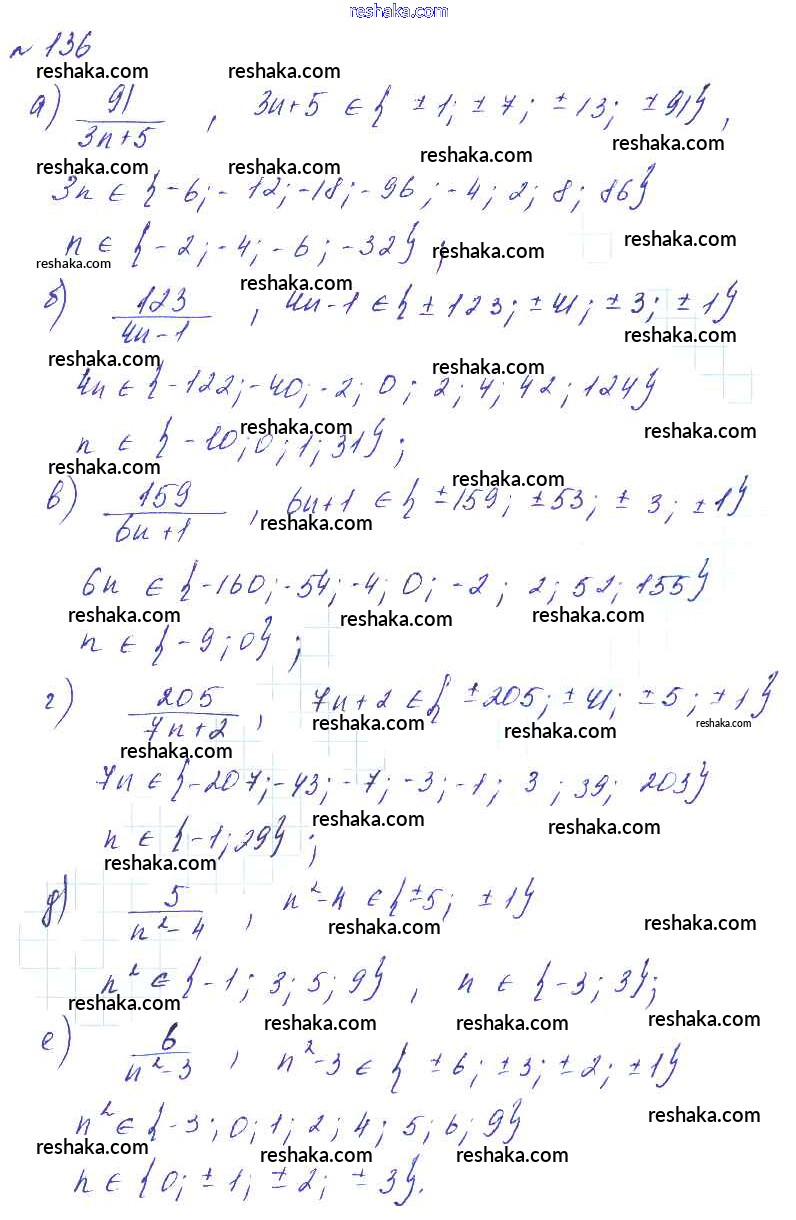 reshaka.com
№ 136
reshaka.com reshaka.com
а) 91/(3n+5) , 3n+5 ∈ { ±1; ±7; ±13; ±91},
reshaka.com reshaka.com
reshaka.com reshaka.com
3n ∈ {-6; -12; -18; -96; -4; 2; 8; 86}
n ∈ {-2; -4; -6; -32} ;
reshaka.com
reshaka.com reshaka.com
б) 123/(4n-1) , 4n-1 ∈ { ±123; ±41; ±3; ±1}
reshaka.com
reshaka.com reshaka.com
4n ∈ {-122; -40; -2; 0; 2; 4; 42; 124}
reshaka.com reshaka.com
n ∈ {-10; 0; 1; 31} ;
reshaka.com reshaka.com
в) 159/(6n+1) , 6n+1 ∈ { ±159; ±53; ±3; ±1}
reshaka.com
6n ∈ {-160; -54; -4; 0; -2; 2; 52; 155}
reshaka.com reshaka.com reshaka.com
n ∈ {-9; 0} ;
г) 205/(7n+2) , 7n+2 ∈ { ±205; ±41; ±5; ±1}
reshaka.com
reshaka.com reshaka.com reshaka.com
7n ∈ {-207; -43; -7; -3; -1; 3; 39; 203}
reshaka.com reshaka.com
n ∈ {-1; 29} ;
reshaka.com
д) 5/(n²-4) , n²-4 ∈ {±5; ±1}
reshaka.com reshaka.com
n² ∈ {-1; 3; 5; 9} , n ∈ {-3; 3};
reshaka.com reshaka.com reshaka.com reshaka.com
е) 6/(n²-3) , n²-3 ∈ { ±6; ±3; ±2; ±1}
reshaka.com
n² ∈ {-3; 0; 1; 2; 4; 5; 6; 9}
reshaka.com reshaka.com reshaka.com
n ∈ {0; ±1; ±2; ±3}.